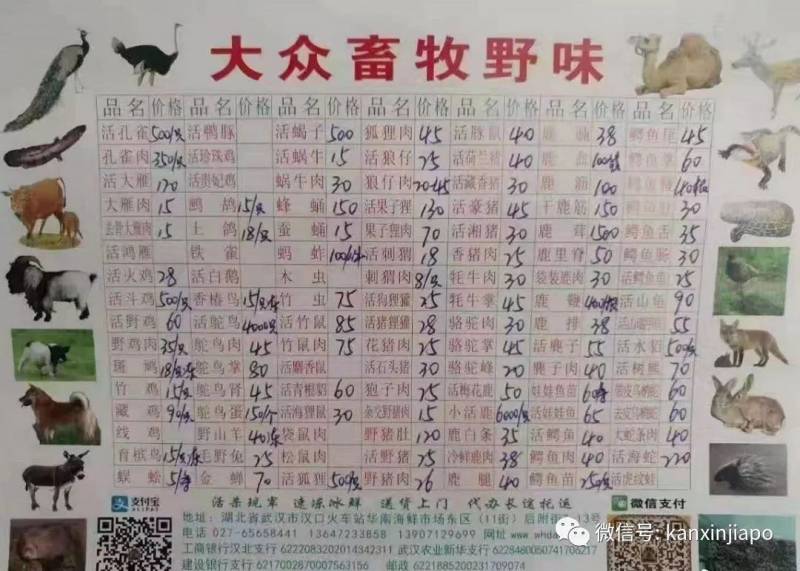 大众畜牧野味
品名 价格 品名 价格 品名 价格 品名 价格 品名 价格 品名 价格 品名 价格
活孔雀 500/只 活鸭豚 活蝎子 500 狐狸肉 45 活豚鼠 40 鹿 38 鳄鱼尾 45
孔雀肉 350/只 活珍珠鸡 活蜗牛 15 活狼仔 25 活荷兰猪 40 鹿血 鳄鱼掌 60
活大雁 120 活贵妃鸡 蜗牛肉 30 狼仔肉 活藏香猪 30 鹿筋 100 鳄鱼
大雁肉 15 鹧鸪 15/只 蜂蛹 150 活果子狸 130 活豪猪 45 干鹿筋 150 鳄鱼肚 30
去骨大雁肉 15 土鸽 18/只 蚕蛹 15 果子狸肉 70 活湘猪 30 鹿茸 1500 鳄鱼舌 35
活鸿雁 铁雀 蚂蚱 活刺猬 18 香猪肉 25 鹿里脊 50 鳄鱼肠 30
活火鸡 28 活白鹅 木虫 刺猬肉 8/只 牦牛肉 30 袋装鹿肉 30 活鳄鱼龟 25
活斗鸡 500/只 香椿鸟 竹虫 75 活狗狸獾 25 牦牛掌 45 鹿鞭 活山龟 90
活野鸡 60 活鸵鸟 4000/只 活竹鼠 85 活猪狸獾 28 骆驼肉 30 鹿排 38 55
野鸡肉 35/只 鸵鸟肉 45 竹鼠肉 75 花猪肉 25 骆驼掌 45 活鹿子 55 活水貂 500/只
斑鸠 鸵鸟掌 80 活麝香鼠 活石头猪 30 骆驼峰 20 鹿子肉 40 活树熊 70
竹鸡 15/只 鸵鸟肾 45 活青根貂 60 狍子肉 25 活梅花鹿 50 娃娃鱼苗 60
藏鸡 90/只 鸵鸟蛋 150/个 活海狸鼠 30 15 小活鹿 6000/只 活娃娃鱼 65 60
线鸡 野山羊 袋鼠肉 野猪肚 120 鹿白条 35 活鳄鱼 40 大蛇条肉 40
育槟鸟 毛野兔 25 松鼠肉 活野猪 25 冷鲜鹿肉 38 鳄鱼肉 40 活海蛇 220
蜈蚣 金蝉 70 活狐狸 500/只 野猪肉 25 鹿腿 40 鳄鱼苗 250/只 活虎纹蛙
支付宝 活杀现宰 速冻冰鲜 送货上门 代办长途托运 微信支付
地址：湖北省武汉市汉口火车站华南海鲜市场东区（11街）后附
电话 027-65658441 13647233858 13907129699 网址 www.whda
工商银行汉北支行 6222083202014342311 武汉农业新华支行 6228480050741706217
建设银行 6217002870007563156 邮政 6221885200231709074
微信号: kanxinjiapo